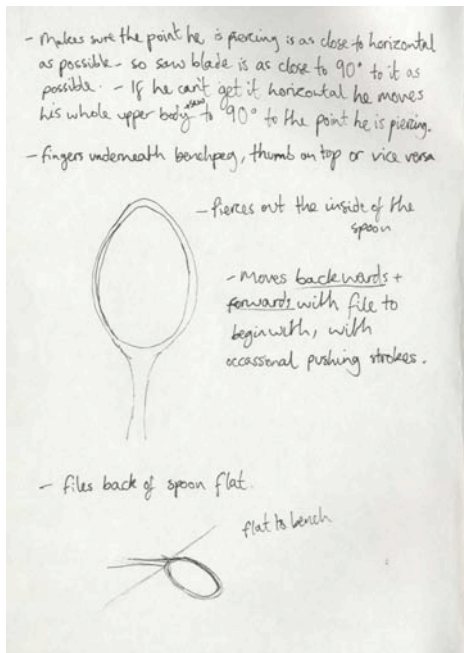 - Makes sure the point he is piercing is as close to horizontal
as possible - so saw blade is as close to 90° to it as
possible. - If he can't get it horizontal he moves
his whole upper body + saw to 90° to the point he is piercing.
- fingers underneath benchpeg, thumb on top or vice versa
- Pierces out the inside of the
spoon
- Moves backwards +
forwards with file to
begin with, with
occassional pushing strokes.
- files back of spoon flat.
flat to bench